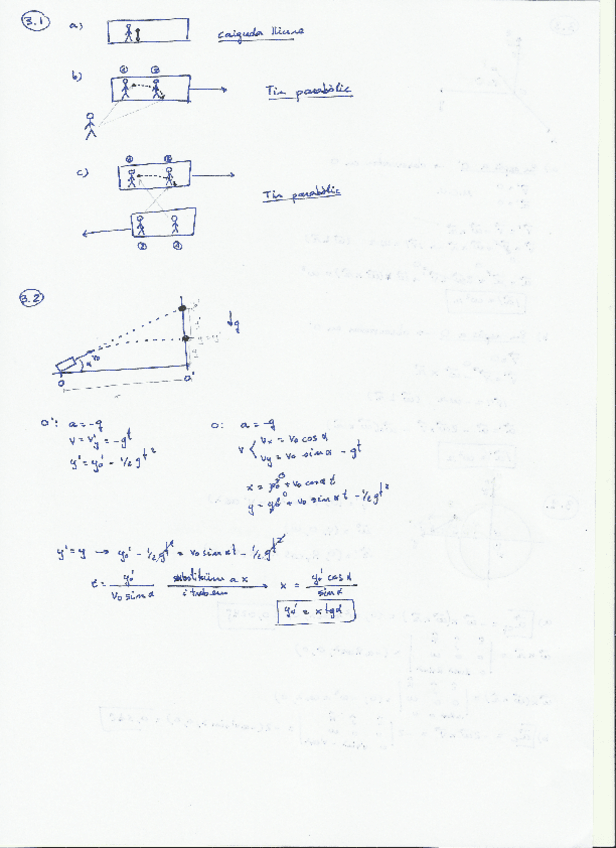 3.1
a)
caiguda lliure
b)
① ②
Tir parabòlic
c)
① ②
Tir parabòlic
② ①
3.2
v₀
α
g
O O'
x
O': a = -g
v = v'y = -gt
y' = y₀' - 1/2 gt²
O: a = -g
v { vx = v₀ cos α
vy = v₀ sin α - gt
x = x₀ + v₀ cos α t
y = y₀ + v₀ sin α t - 1/2 gt²
y' = y → y₀' - 1/2 gt² = v₀ sin α t - 1/2 gt²
t = y₀' / v₀ sin α substituïm a x i trobem → x = y₀' cos α / sin α
y₀' = x tg α